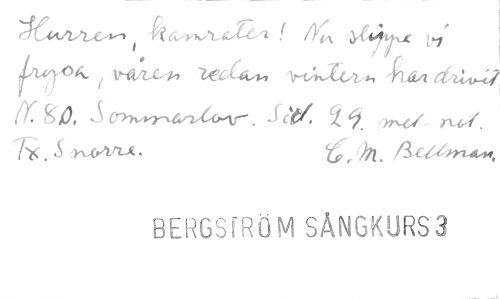 Hurren, kamrater! Nu slippa vi
frysa, våren redan vintern har drivit
N. 80. Sommarlov. Sid. 29. mel. not.
Tx. Snorre. C. M. Bellman.
BERGSTRÖM SÅNGKURS 3